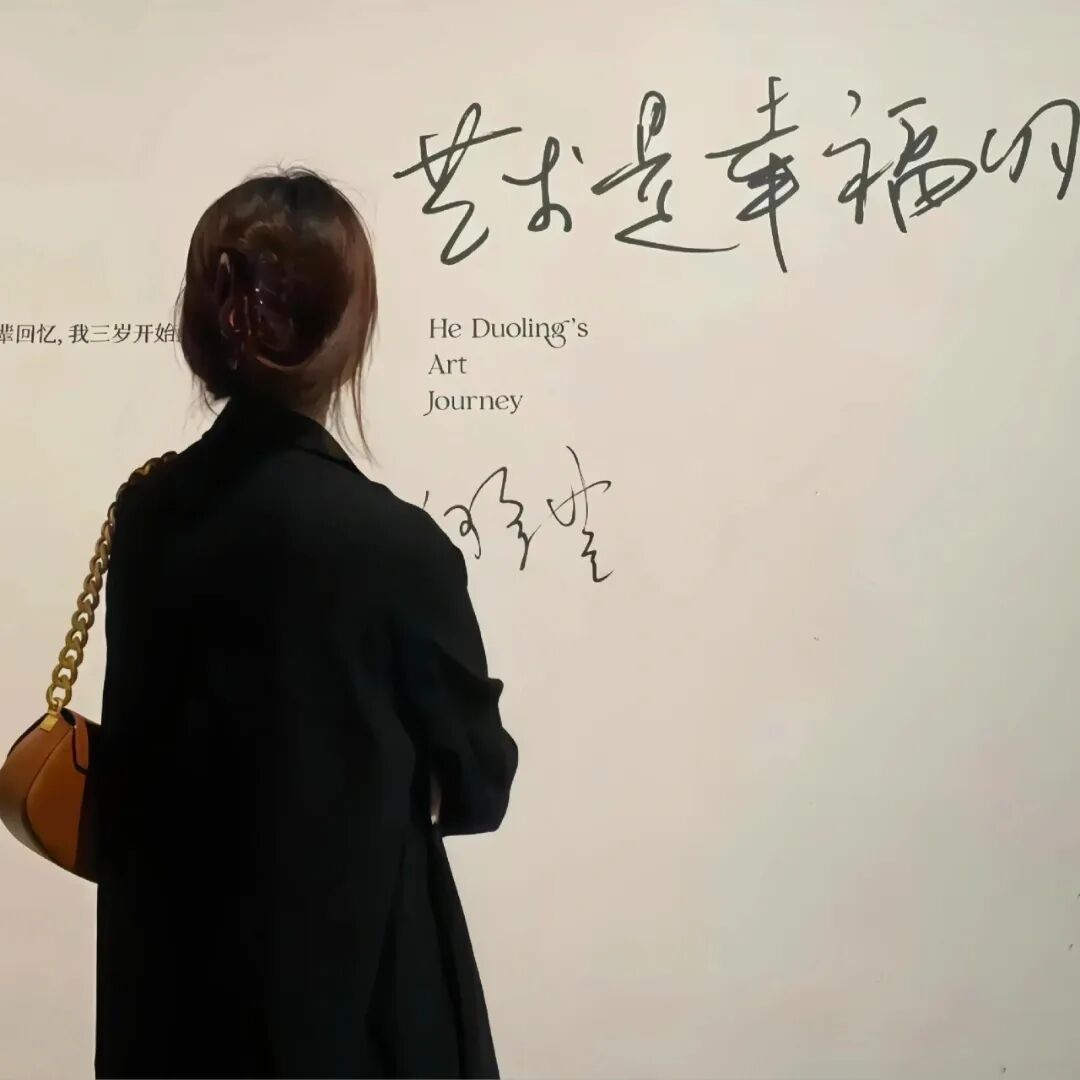 艺术是幸福的
辈回忆, 我三岁开始
He Duoling's
Art
Journey
何多苓